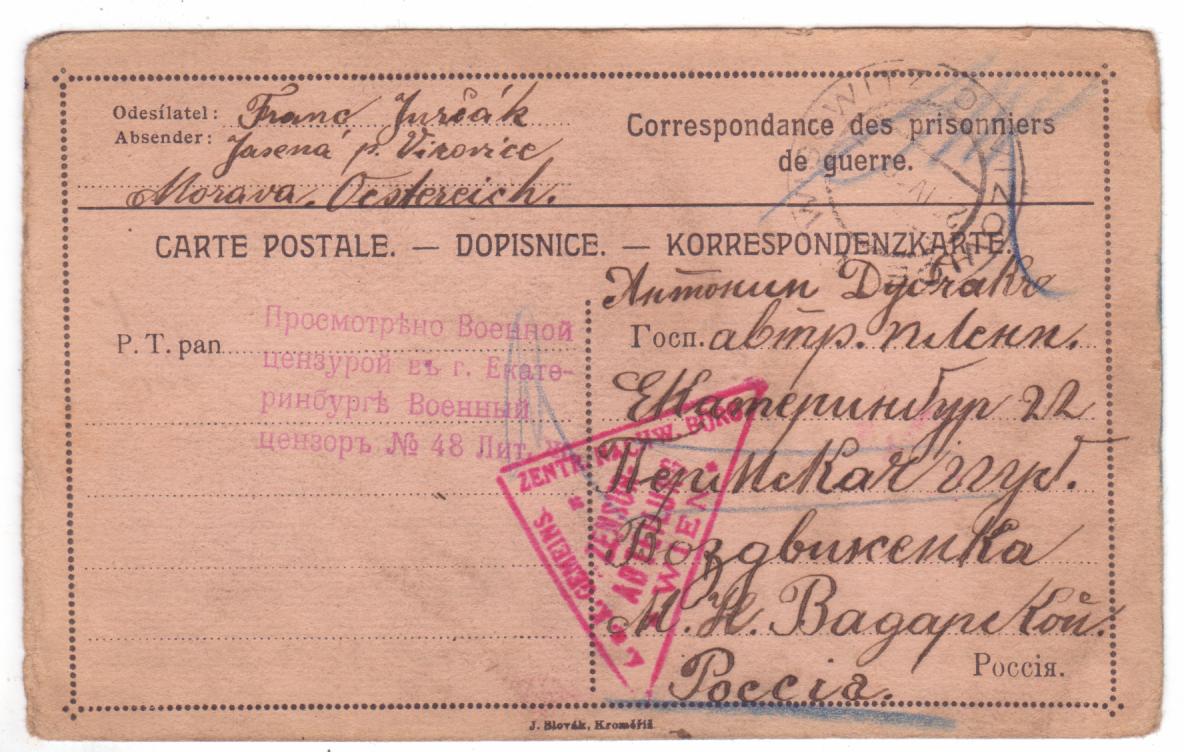 Odesílatel: Franc Jurčák
Absender: Jasená p. Vizovice
Morava. Oestereich.
Correspondance des prisonniers
de guerre.
CARTE POSTALE. — DOPISNICE. — KORRESPONDENZKARTE.
P. T. pan
Просмотрѣно Военной
цензурой въ г. Екате-
ринбургѣ Военный
цензоръ № 48 Лит.
Антонин
Госп. автр. плени.
Екатеринбур 22
Пермская губ.
Воздвиженка
М. Н. Вадарской.
Россіа.
Россія.
ZENTR. NACHW. BÜRO
GEMEINS.
ZENSUR
ABTEILUNG
WIEN
J. Slovák, Kroměříž